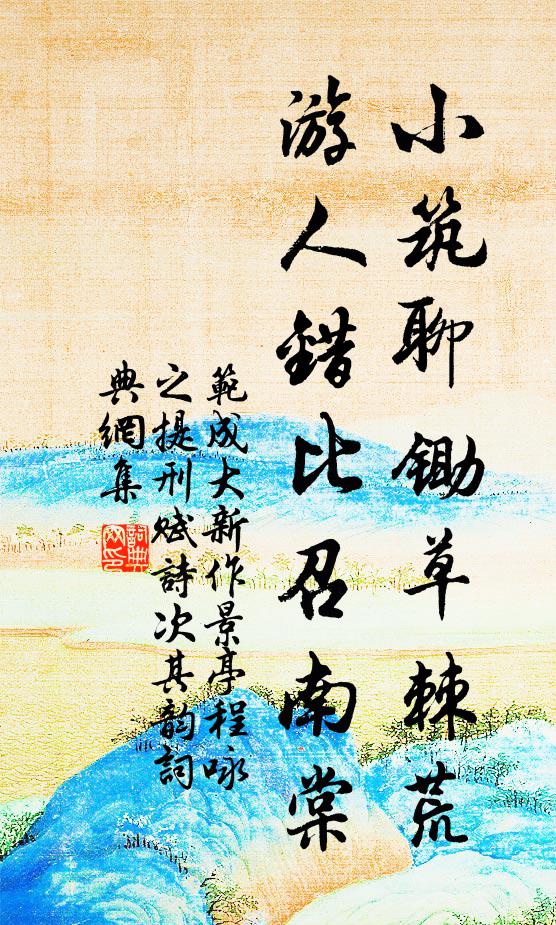 小筑聊锄草棘荒
游人錯比召南棠
範成大新作景亭程咏
之提刑赋詩次其韵詞
典網集
詞典